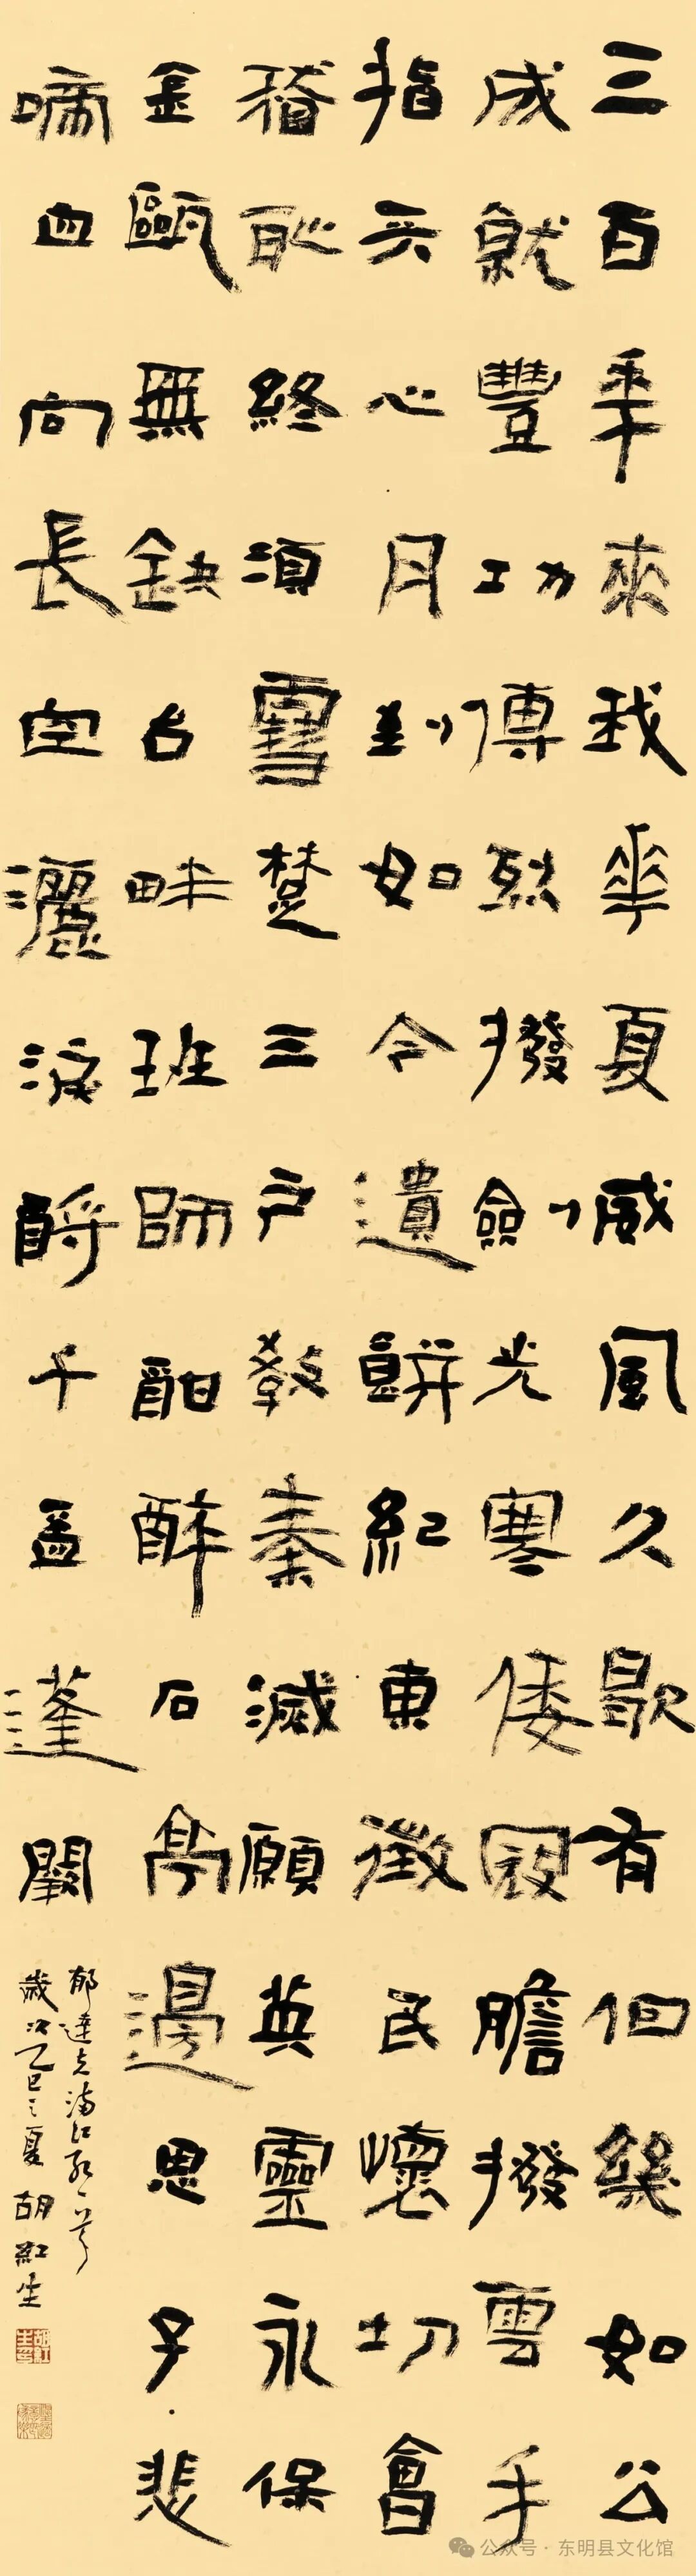 三百年來我華夏威風久歇有個幾如公
成就豐功傳烈撥劍光寒倭寇膽撥雲手
指天心月到如今遺餅紀東徵民懷切會
稽恥終須雪楚三戶教秦滅願英靈永保
金甌無缺台畔班師酣醉石亭邊思子悲
啼血向長空灑淚酹千盃蓬闕
郁達夫滿江紅一首
歲次乙巳之夏 胡紅生
公众号 · 东明县文化馆